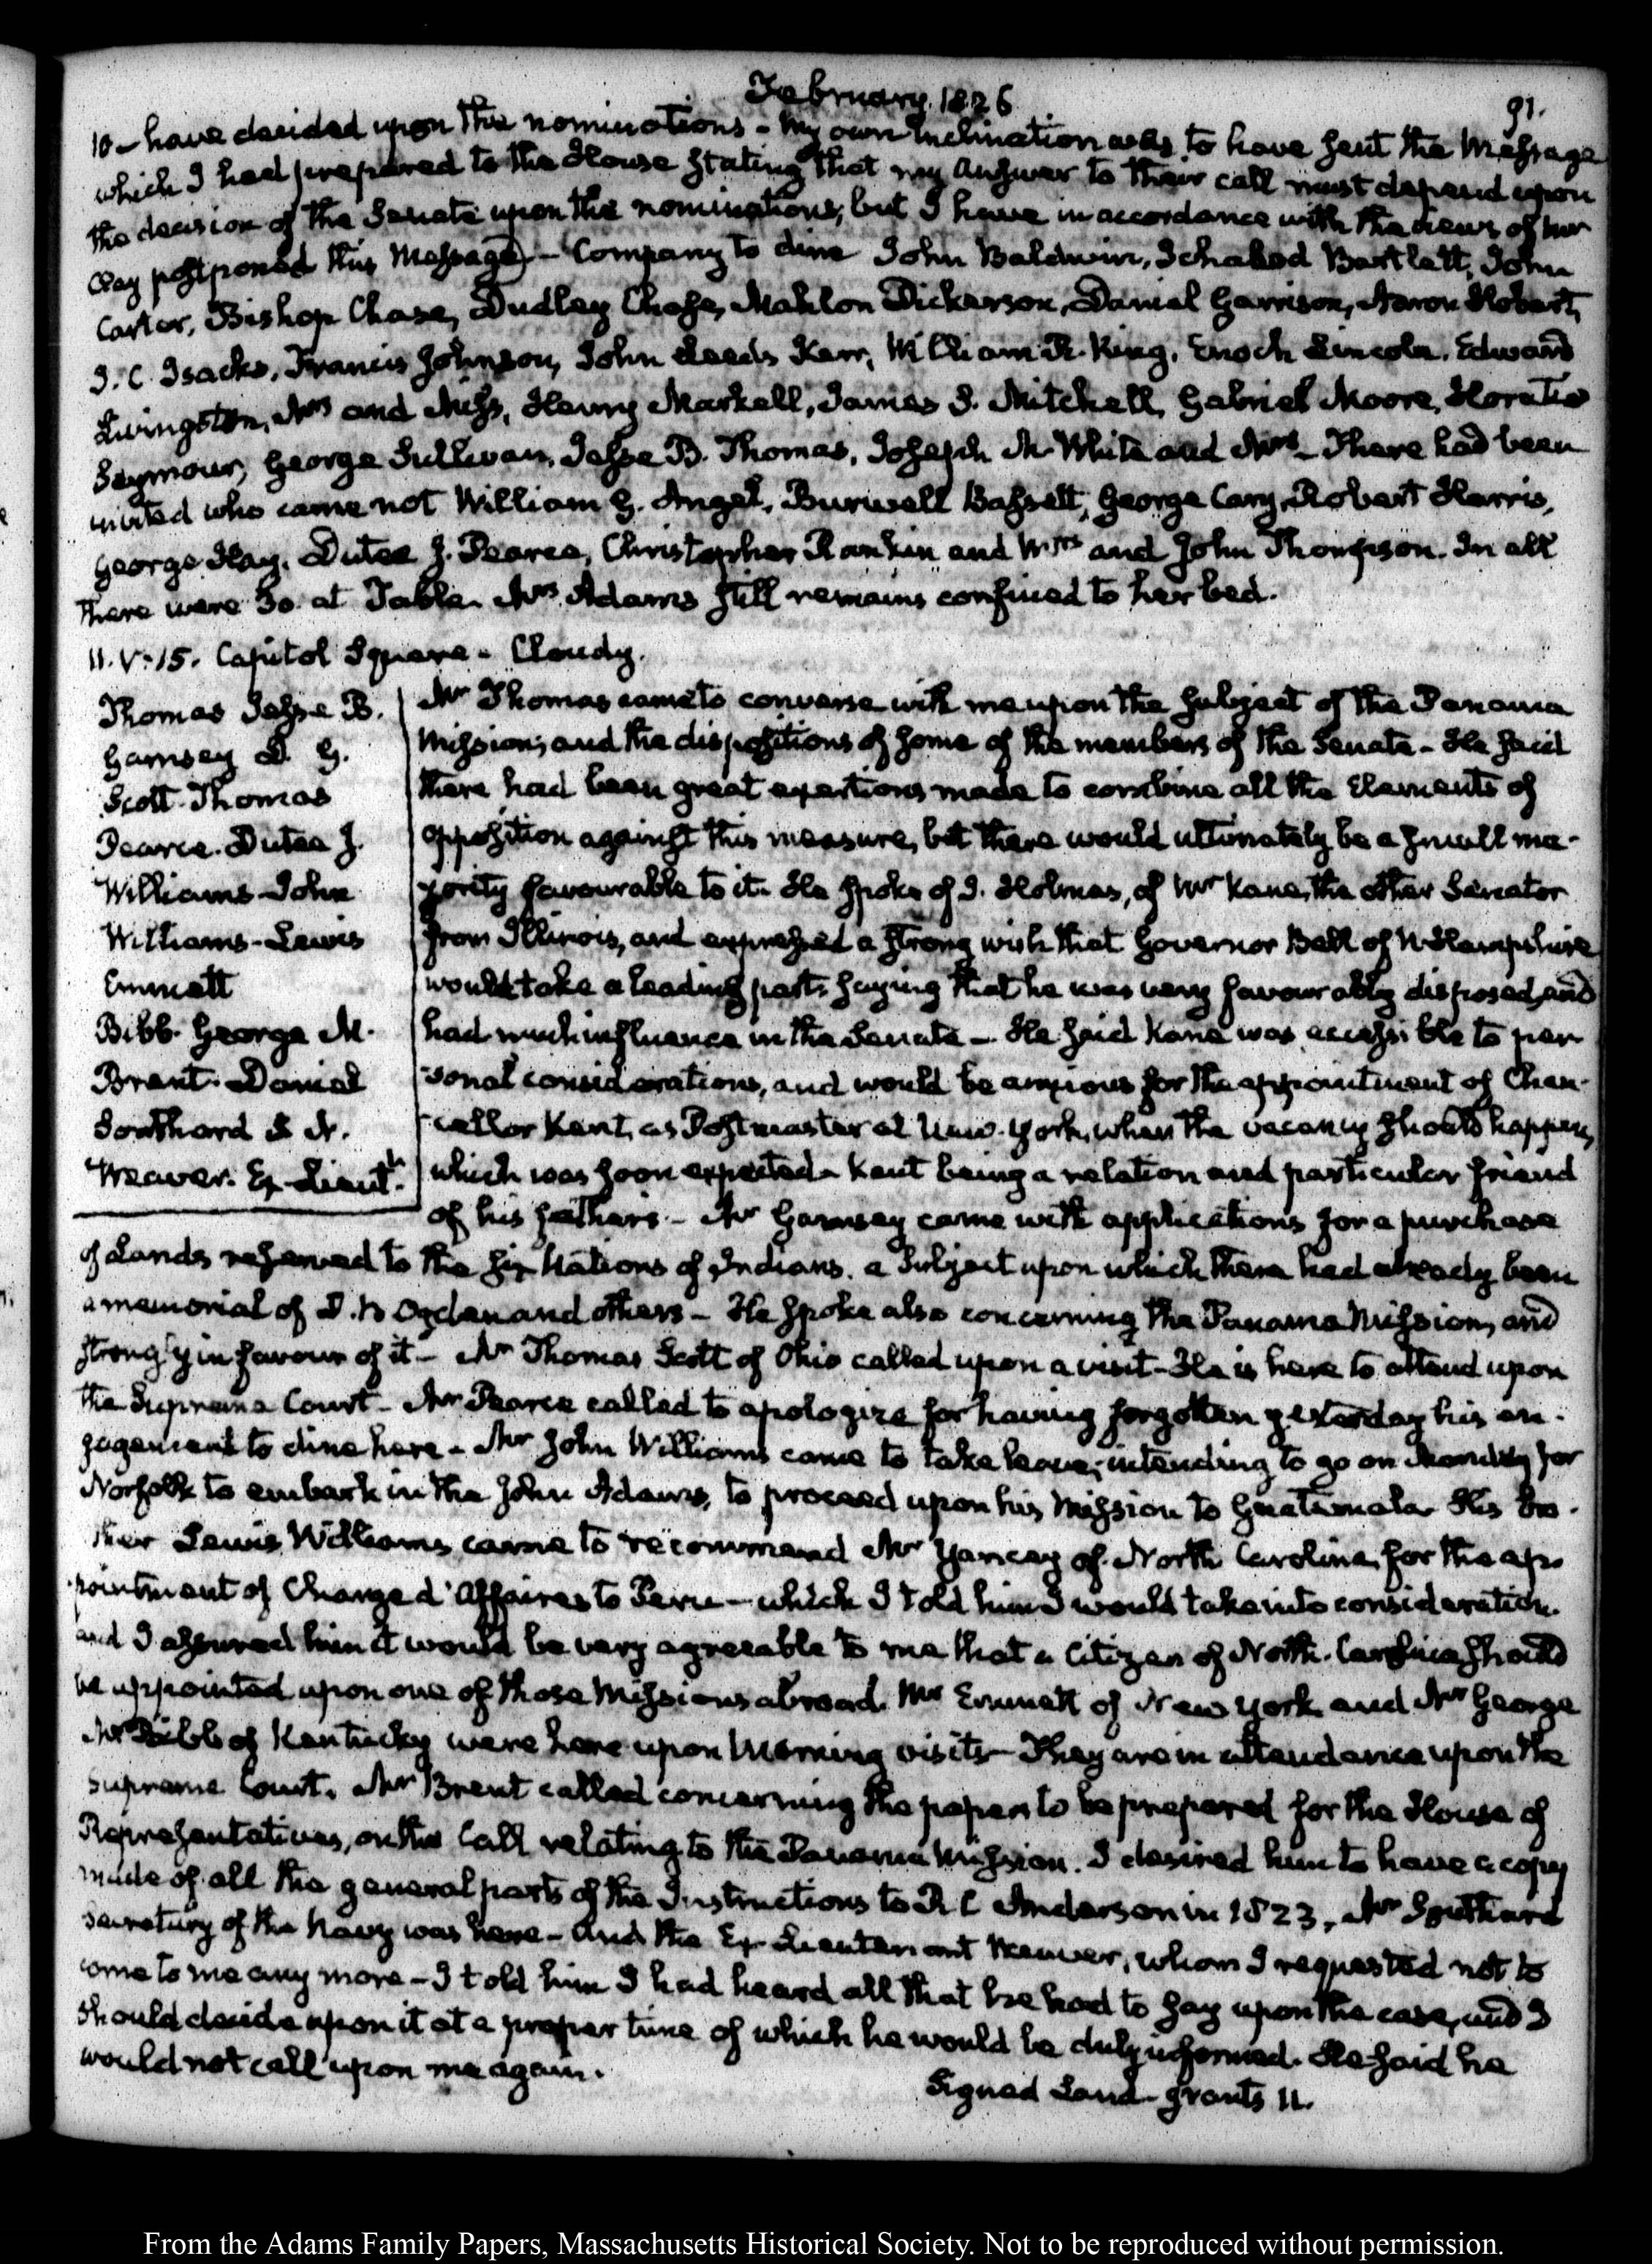 February 1826
91.
10 – have decided upon the nominations – My own inclination was to have sent the Message
which I had prepared to the House stating that my answer to their call must depend upon
the decision of the Senate upon the nominations, but I have in accordance with the views of Mr
Clay postponed this Message) – Company to dine John Baldwin, Ichabod Bartlett, John
Carter, Bishop Chase, Dudley Chase, Mahlon Dickerson, Daniel Garrison, Aaron Hobart,
J. C. Isacks, Francis Johnson, John Leeds Kerr, William R. King, Enoch Lincoln, Edward
Livingston, Mrs and Miss, Henry Markell, James S. Mitchell, Gabriel Moore, Horatio
Seymour, George Sullivan, Jesse B. Thomas, Joseph M. White and Mrs – There had been
invited who came not William G. Angel, Burwell Bassett, George Cary, Robert Harris,
George Hay, Dutee J. Pearce, Christopher Rankin and Mrs and John Thompson. In all
there were 30. at Table. Mrs Adams still remains confined to her bed.
11. V:15. Capitol Square – Cloudy.
Thomas Jesse B.
Garnsey D. G.
Scott. Thomas
Pearce. Dutee J.
Williams – John
Williams – Lewis
Emmett
Bibb. George M.
Brent. Daniel
Southard S. L.
Weaver. Ex-Lieutt.
Mr Thomas came to converse with me upon the subject of the Panama
Mission, and the dispositions of some of the members of the Senate – He said
there had been great exertions made to combine all the Elements of
opposition against this measure, but there would ultimately be a small ma-
jority favourable to it. He spoke of J. Holmes, of Mr Kane, the other Senator
from Illinois, and expressed a strong wish that Governor Bell of N. Hampshire
would take a leading part, saying that he was very favourably disposed, and
had much influence in the Senate – He said Kane was accessible to per
sonal considerations, and would be anxious for the appointment of Chan-
cellor Kent, as Postmaster at New-York, when the vacancy should happen,
which was soon expected – Kent being a relation and particular friend
of his father's – Mr Garnsey came with applications for a purchase
of Lands reserved to the Six Nations of Indians. a subject upon which there had already been
a memorial of D. B. Ogden and others – He spoke also concerning the Panama Mission, and
strongly in favour of it – Mr Thomas Scott of Ohio called upon a visit – He is here to attend upon
the Supreme Court – Mr Pearce called to apologize for having forgotten yesterday his en-
gagement to dine here – Mr John Williams came to take leave; intending to go on Monday for
Norfolk to embark in the John Adams, to proceed upon his Mission to Guatemala His bro-
ther Lewis Williams came to recommend Mr Yancey of North Carolina, for the ap-
pointment of Chargé d'Affaires to Peru – which I told him I would take into consideration.
and I assured him it would be very agreeable to me that a Citizen of North-Carolina should
be appointed upon one of those Missions abroad. Mr Emmett of New York and Mr George
M. Bibb of Kentucky were here upon morning visits – They are in attendance upon the
Supreme Court. Mr Brent called concerning the papers to be prepared for the House of
Representatives, on the Call relating to the Panama Mission. I desired him to have a copy
made of all the general parts of the Instructions to R C Anderson in 1823, Mr Southard
Secretary of the Navy was here – And the Ex-Lieutenant Weaver, whom I requested not to
come to me any more – I told him I had heard all that he had to say upon the case, and I
should decide upon it at a proper time of which he would be duly informed. He said he
would not call upon me again.
Signed Land-grants 11.
From the Adams Family Papers, Massachusetts Historical Society. Not to be reproduced without permission.